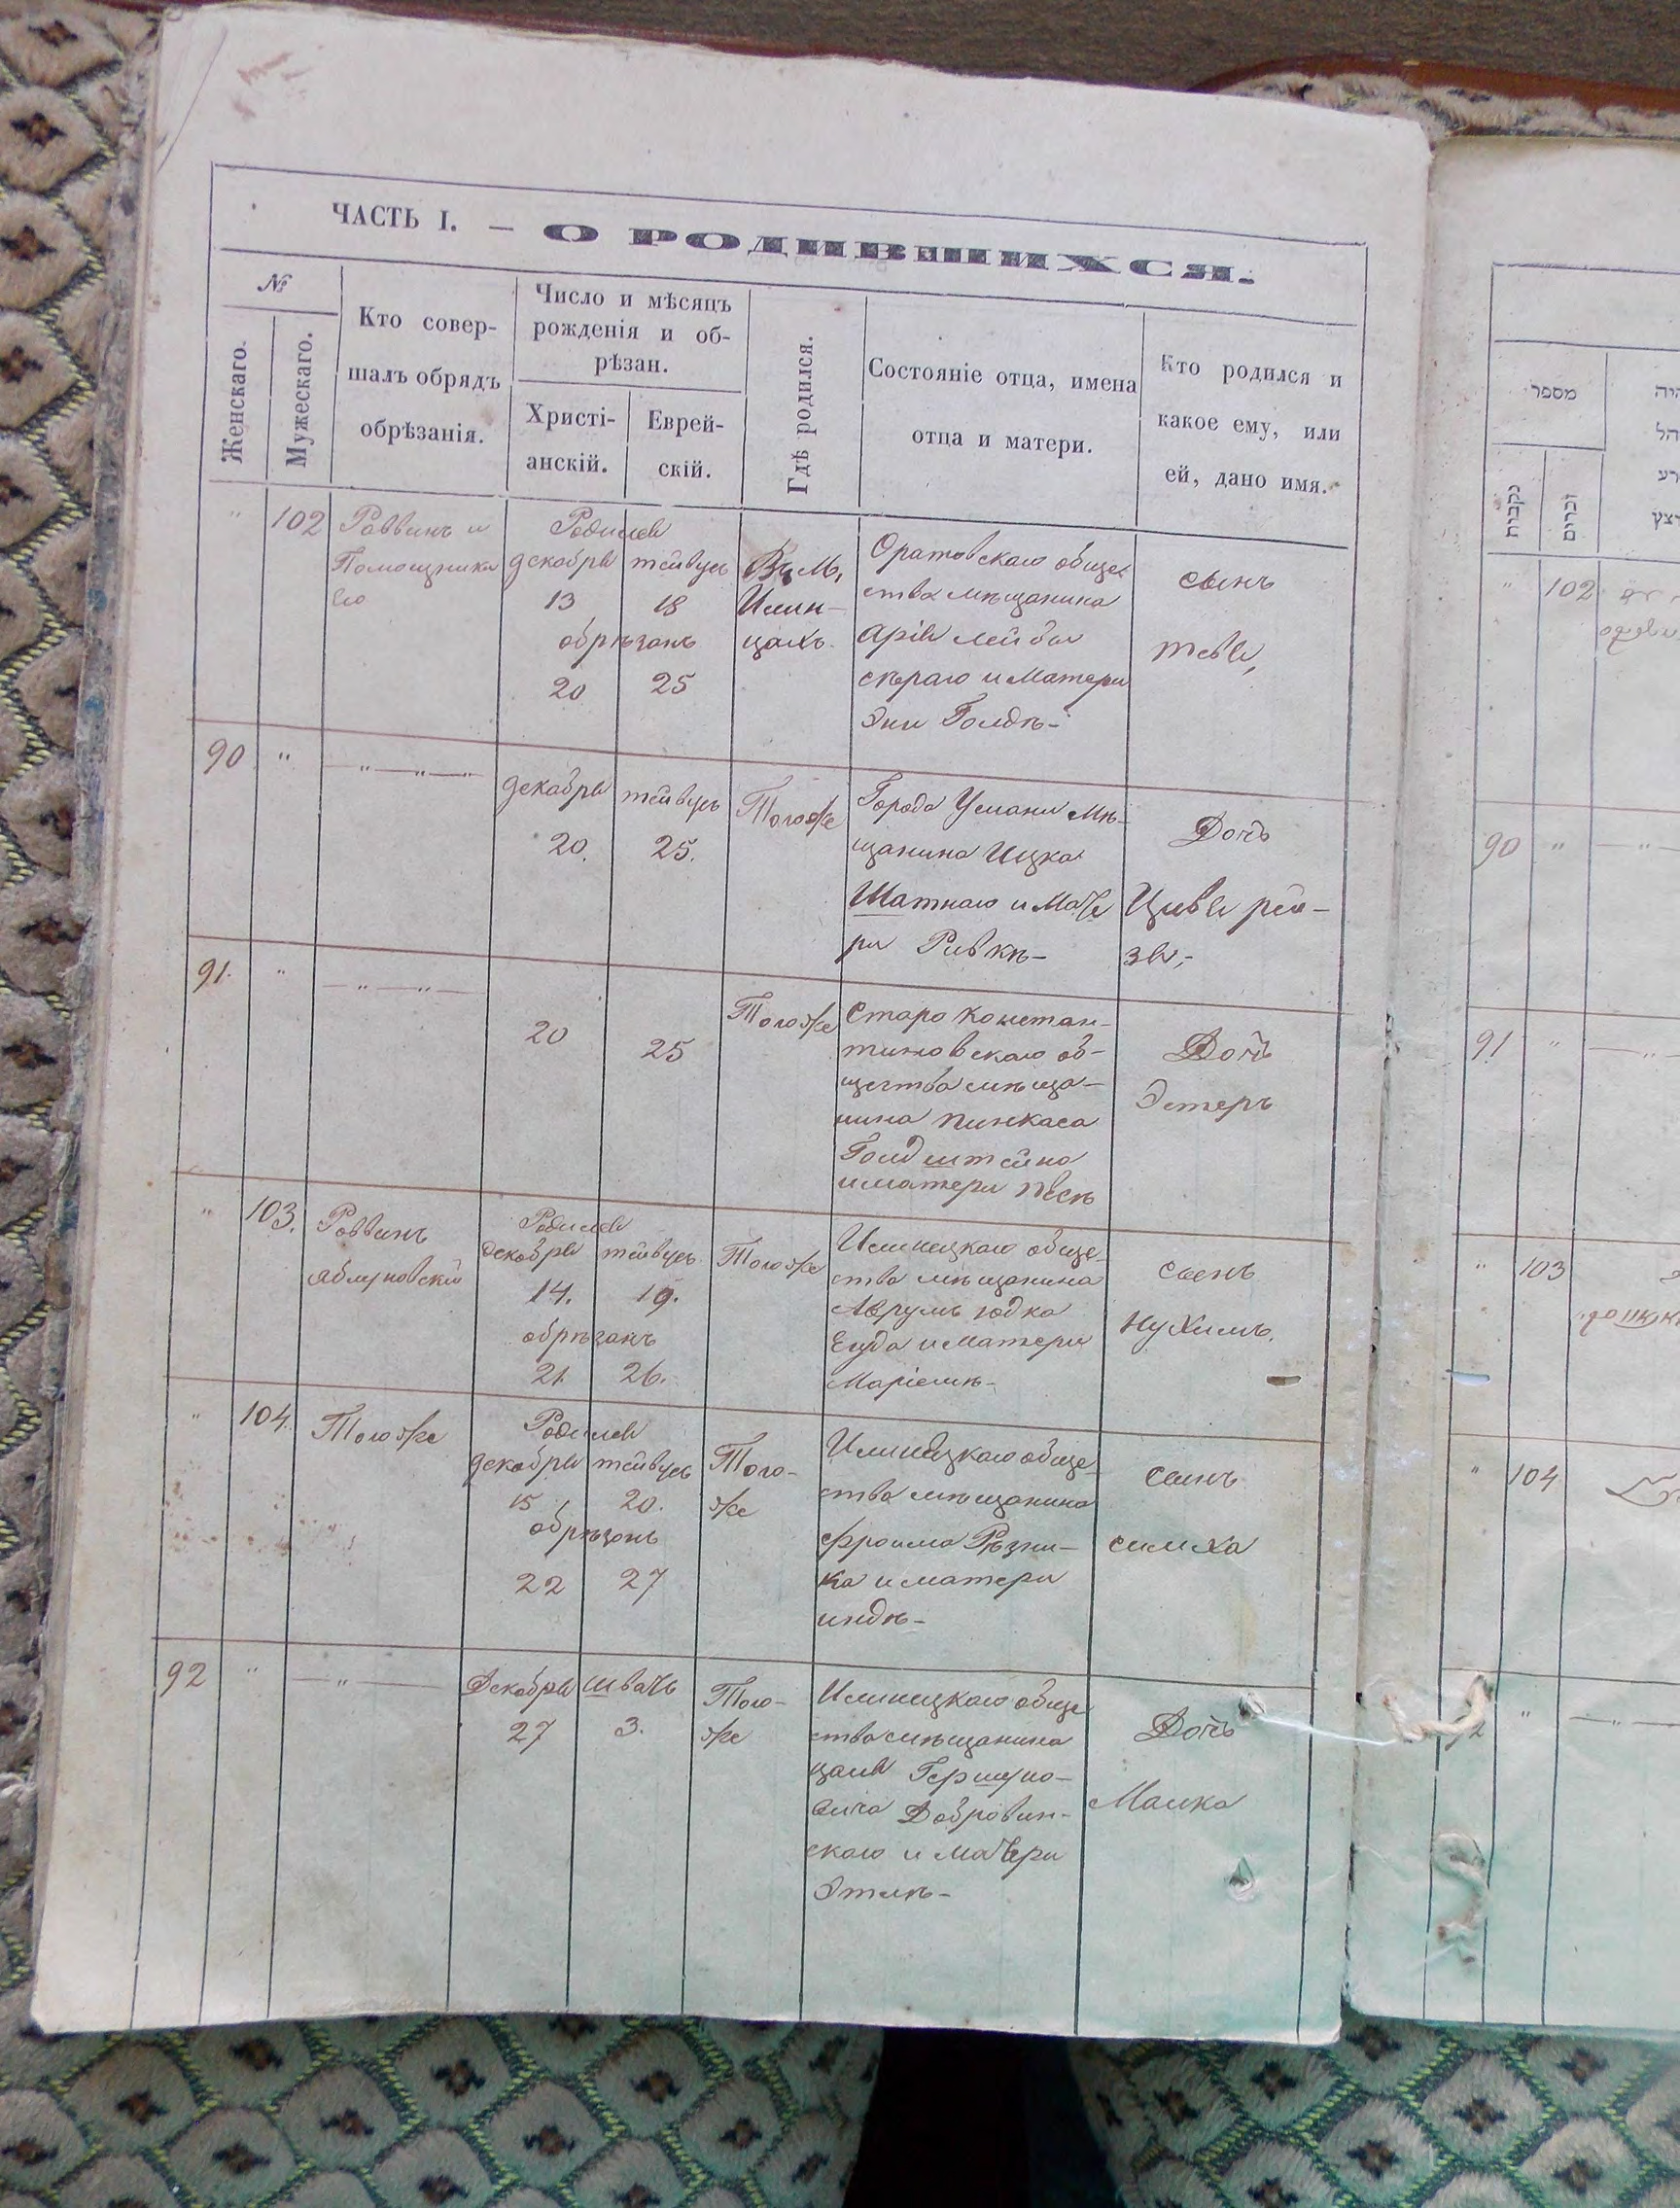 ЧАСТЬ I. — О РОДИВШИХСЯ.
№
Женскаго.
Мужескаго.
Кто совер-
шалъ обрядъ
обрѣзанія.
Число и мѣсяцъ
рожденія и об-
рѣзан.
Христі-
анскій.
Еврей-
скій.
Гдѣ родился.
Состояніе отца, имена
отца и матери.
Кто родился и
какое ему, или
ей, дано имя.
" 102
Раввинъ и
Помощника
его
Родился
декабря тейвусъ
13 18
обрѣзанъ
20 25
Въ М,
Илин-
цахъ.
Оратовскаго обще
ства мѣщанина
Арія Лейба
и Матери
Голдѣ-
сынъ
90 "
— " — " —
декабря тейвусъ
20. 25.
Того же
Города Умани мѣ-
щанина Ицка
Шатнаго и Мате
ри Ривкѣ-
Дочь
Цивя рей-
зя,-
91. "
— " — " —
20 25
Того же
Старо Констан-
тиновскаго об-
щества мѣща-
нина Пинкаса
Голдштейна
и матери Песѣ
Дочь
Эстеръ
" 103.
Раввинъ
Яблуновскій
Родился
декабря тейвусъ
14. 19.
обрѣзанъ
21. 26.
Того же
Илинецкаго обще-
ства мѣщанина
Аврумъ Юдка
и матери
Маріемѣ-
сынъ
Нухимъ.
" 104.
Того же
Родился
декабря тейвусъ
15 20.
обрѣзанъ
22 27
Того-
же
Илинецкаго обще-
ства мѣщанина
Фроима Рѣзни-
ка и матери
индѣ-
сынъ
симха
92 "
— " —
Декабря шватъ
27 3.
Того-
же
Илинецкаго обще
ства мѣщанина
Гершко-
вича Добровин-
скаго и матери
Этлѣ-
Дочь
Малка
מספר
נקבות
זכרים
" 102
90 "
91 "
" 103
" 104